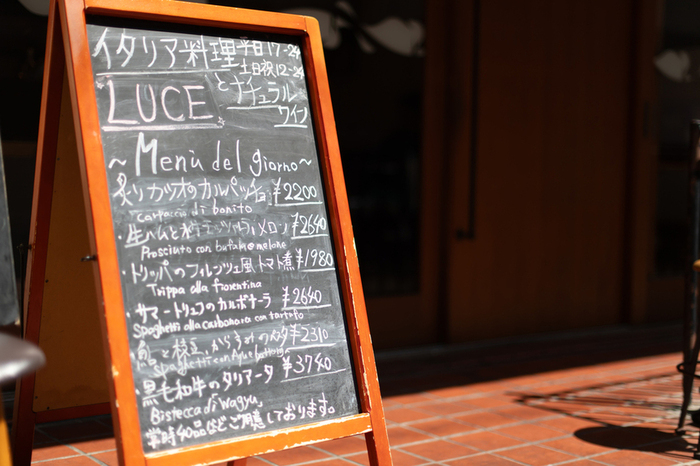 イタリア料理 平日17-24
土日祝12-24
LUCE とナチュラル
ワイン
~Menù del giorno~
炙りカツオのカルパッチョ ¥2200
carpaccio di bonito
・生ハムと水牛モッツァレラ、メロン ¥2640
Prosciuto con bufala e melone
・トリッパのフィレンツェ風トマト煮 ¥1980
Trippa alla fiorentina
・サマートリュフのカルボナーラ ¥2640
Spaghetti alla Carbonara con tartufo
と枝豆、からすみの ¥2310
Spaghetti con
・黒毛和牛のタリアータ ¥3740
Bistecca di Wagyu
常時40品などご用意しております。